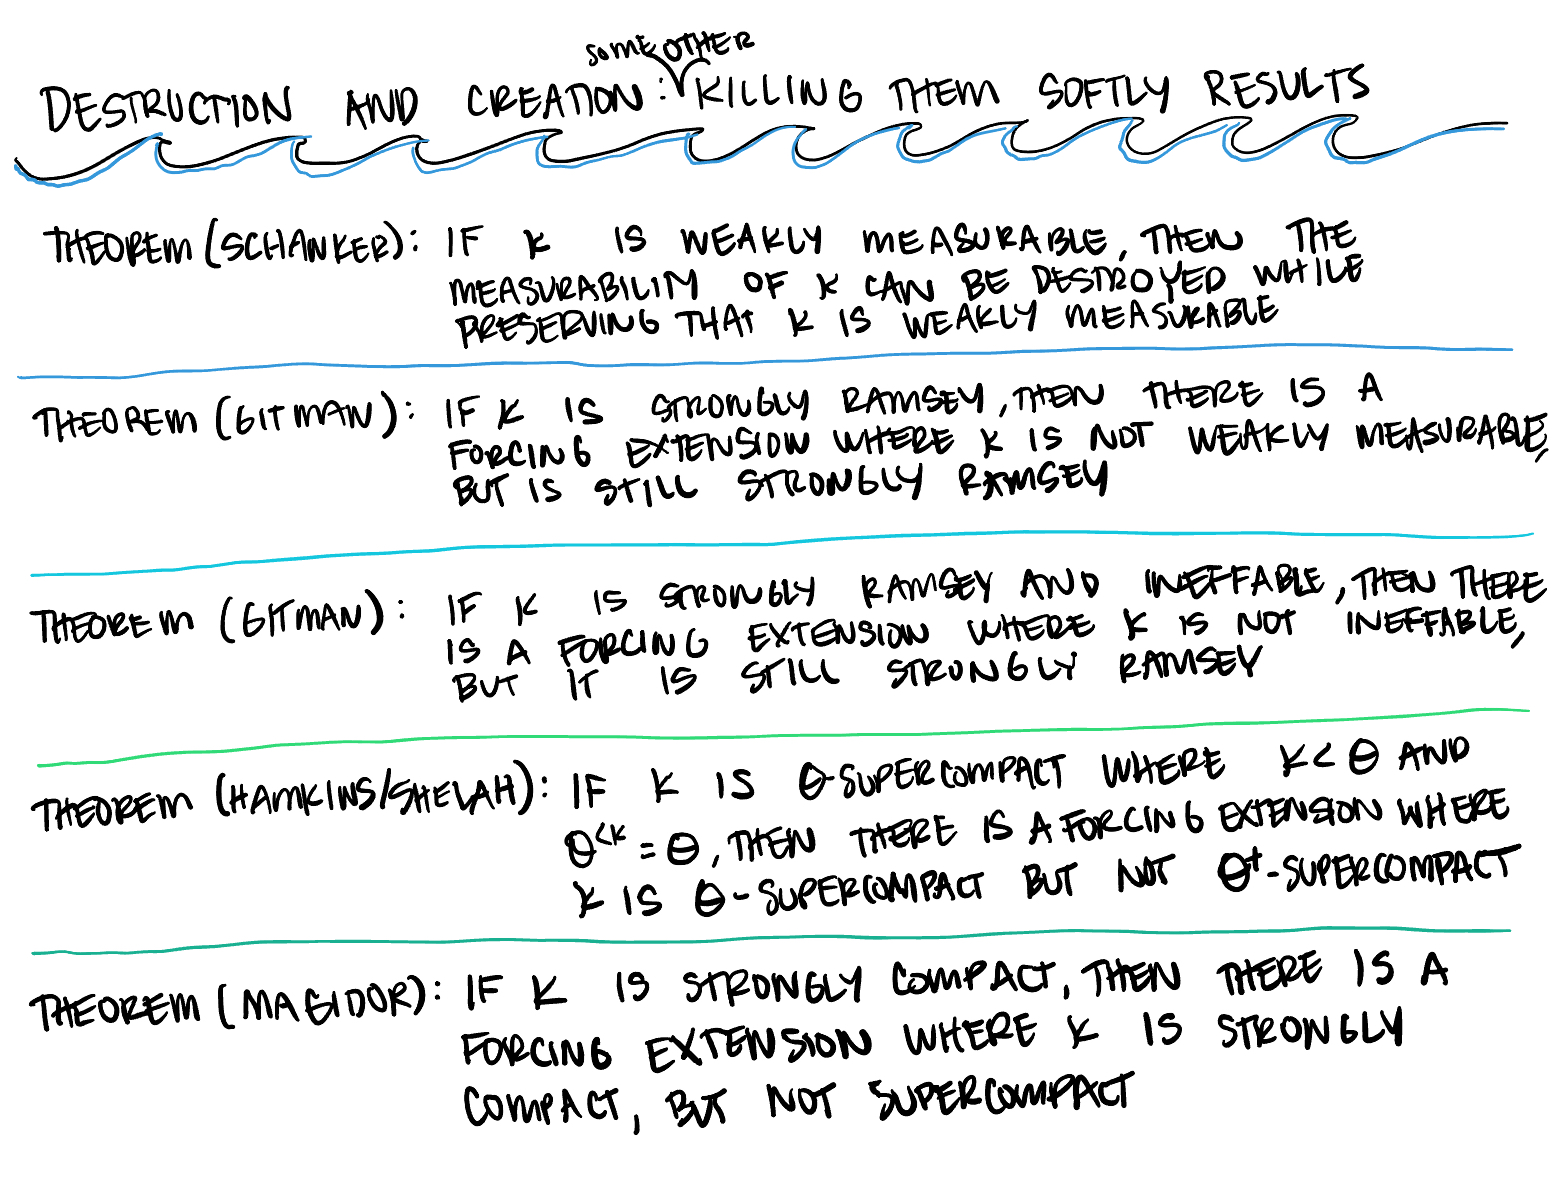 SOME OTHER
DESTRUCTION AND CREATION: KILLING THEM SOFTLY RESULTS
THEOREM (SCHANKER): IF κ IS WEAKLY MEASURABLE, THEN THE
MEASURABILITY OF κ CAN BE DESTROYED WHILE
PRESERVING THAT κ IS WEAKLY MEASURABLE
THEOREM (GITMAN): IF κ IS STRONGLY RAMSEY, THEN THERE IS A
FORCING EXTENSION WHERE κ IS NOT WEAKLY MEASURABLE,
BUT IS STILL STRONGLY RAMSEY
THEOREM (GITMAN): IF κ IS STRONGLY RAMSEY AND INEFFABLE, THEN THERE
IS A FORCING EXTENSION WHERE κ IS NOT INEFFABLE,
BUT IT IS STILL STRONGLY RAMSEY
THEOREM (HAMKINS/SHELAH): IF κ IS θ-SUPERCOMPACT WHERE κ < θ AND
θ^{<κ} = θ, THEN THERE IS A FORCING EXTENSION WHERE
κ IS θ-SUPERCOMPACT BUT NOT θ⁺-SUPERCOMPACT
THEOREM (MAGIDOR): IF κ IS STRONGLY COMPACT, THEN THERE IS A
FORCING EXTENSION WHERE κ IS STRONGLY
COMPACT, BUT NOT SUPERCOMPACT